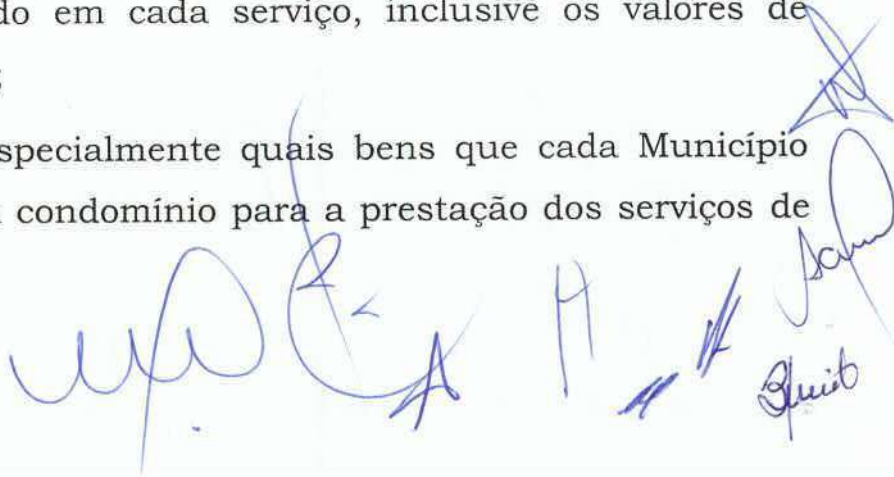 do em cada serviço, inclusive os valores de
specialmente quais bens que cada Município
condomínio para a prestação dos serviços de